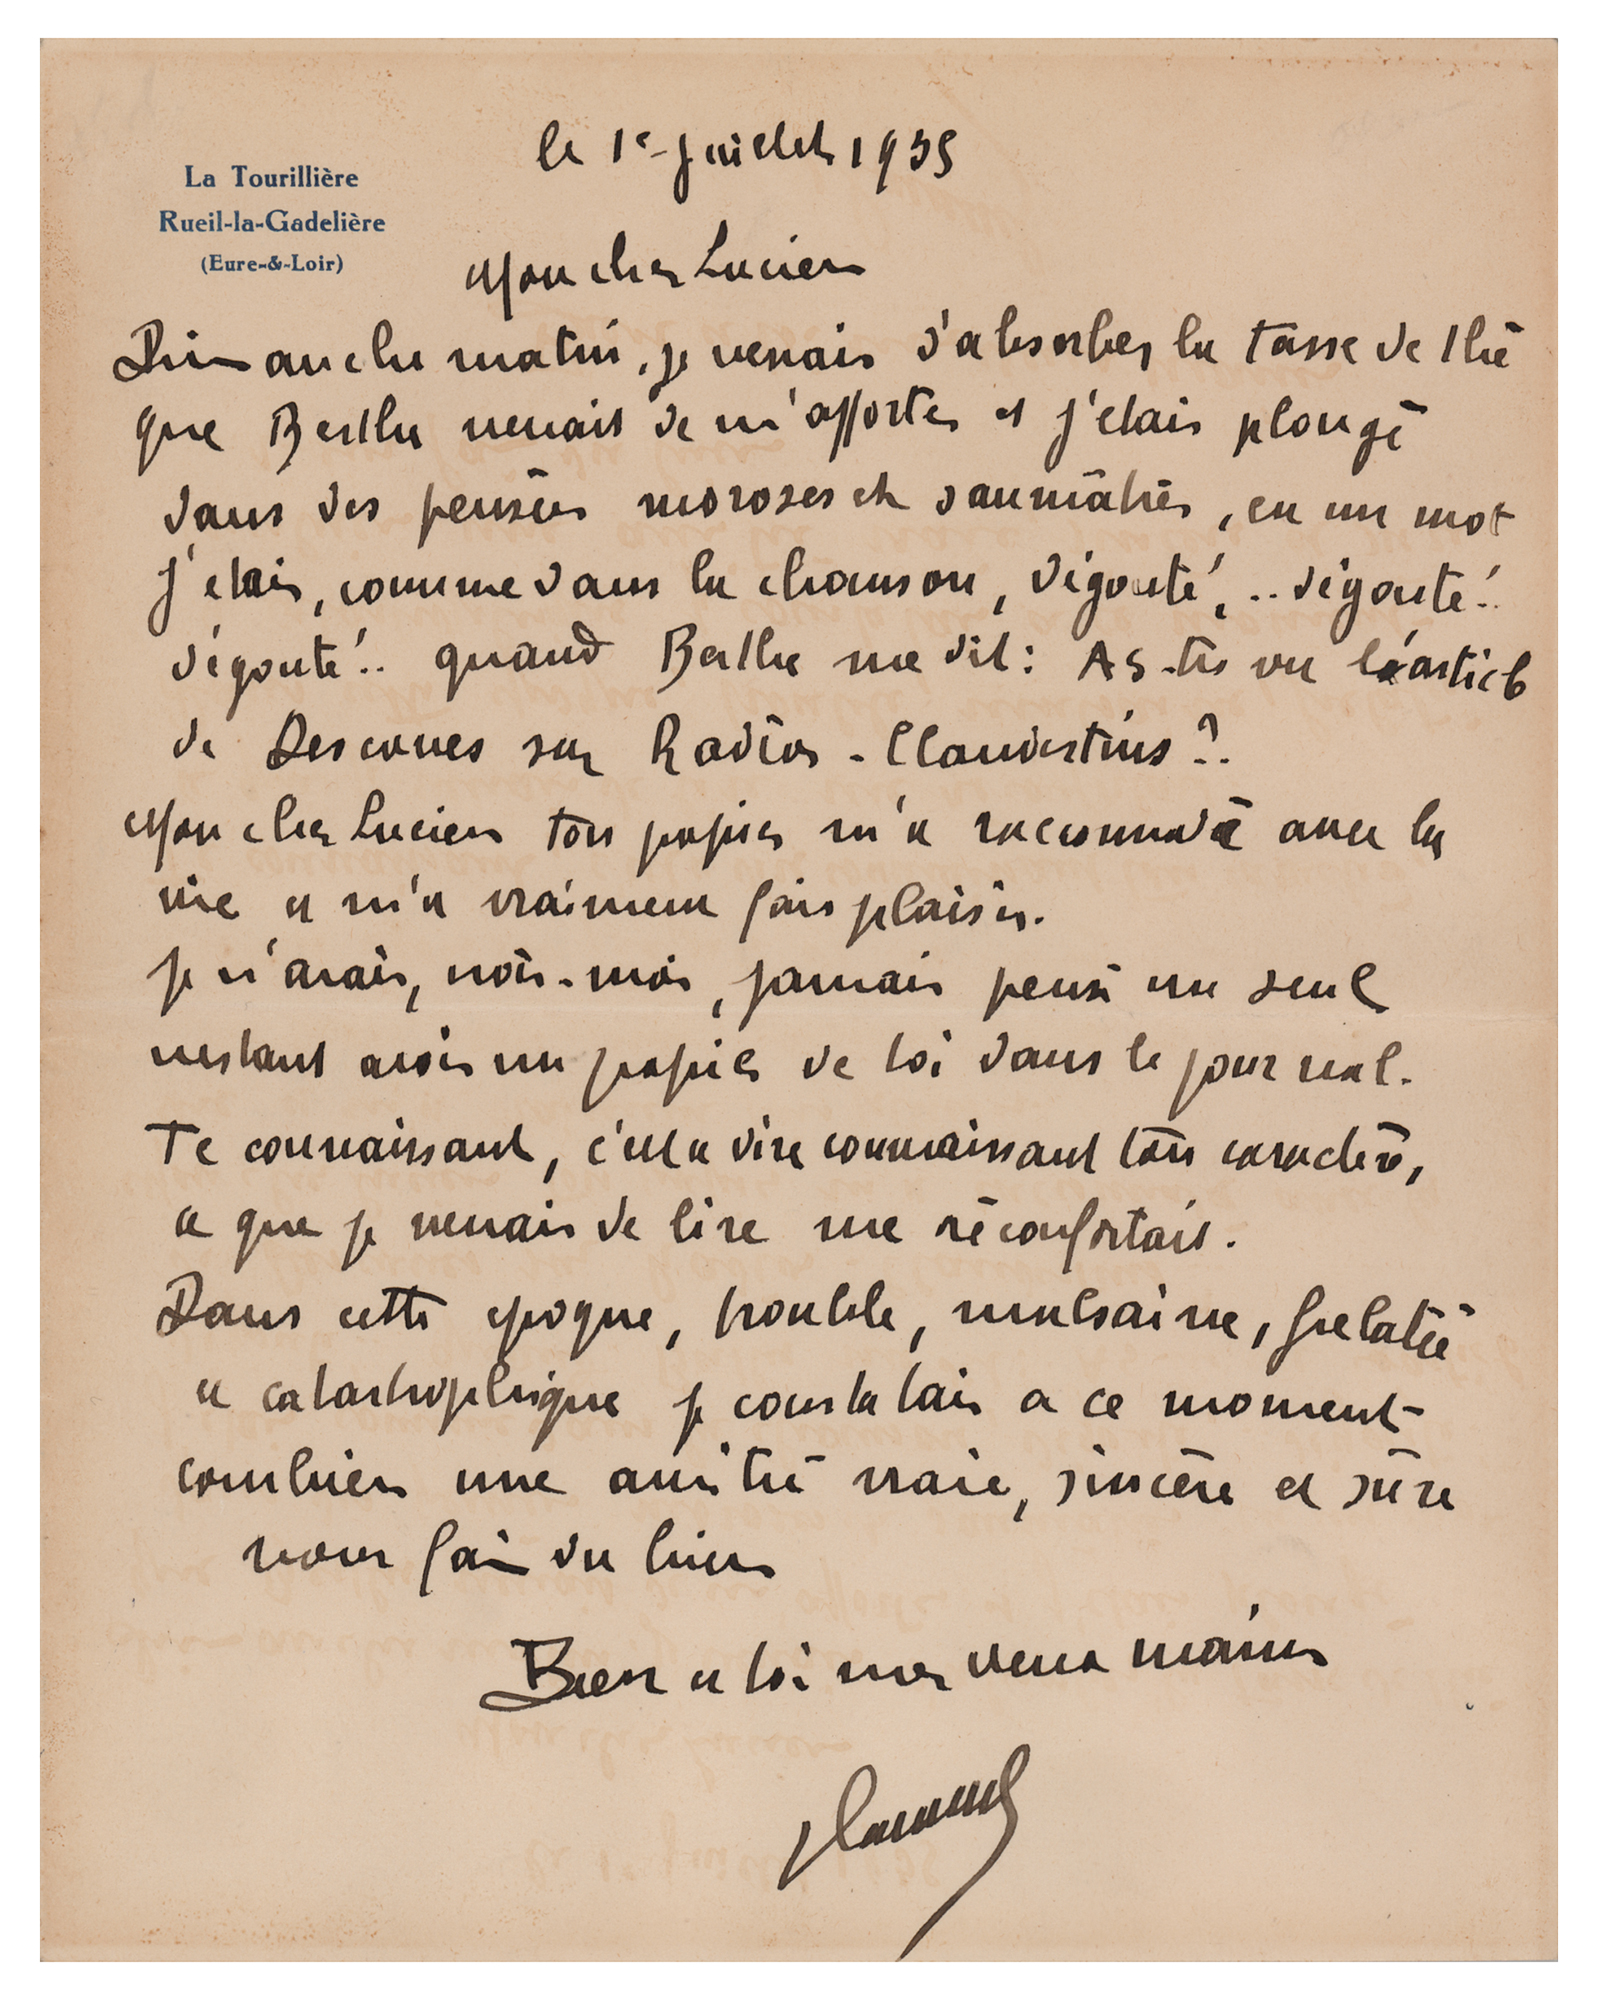 La Tourillière
Rueil-la-Gadelière
(Eure-&-Loir)
le 1e Juillet 1935
Mon cher Lucien
Dimanche matin, je venais d'absorber la tasse de thé
que Berthe venait de m'apporter et j'étais plongé
dans des pensées moroses et saumâtres, en un mot
j'étais, comme dans la chanson, dégouté!.. dégouté!..
dégouté!.. quand Berthe me dit : As-tu vu l'article
de Descaves sur Radios-Clandestins ?.
Mon cher Lucien ton papier m'a raccommodé avec la
vie et m'a vraiment fait plaisir.
Je n'avais, vois-moi, jamais pensé un seul
instant avoir un papier de toi dans le journal.
Te connaissant, c'est a dire connaissant ton caractère,
ce que je venais de lire me réconfortait.
Dans cette époque, trouble, malsaine, frelatée
et catastrophique je constatais a ce moment
combien une amitié vraie, sincère et sûre
nous fait du bien
Bien a toi mes deux mains
Vlaminck